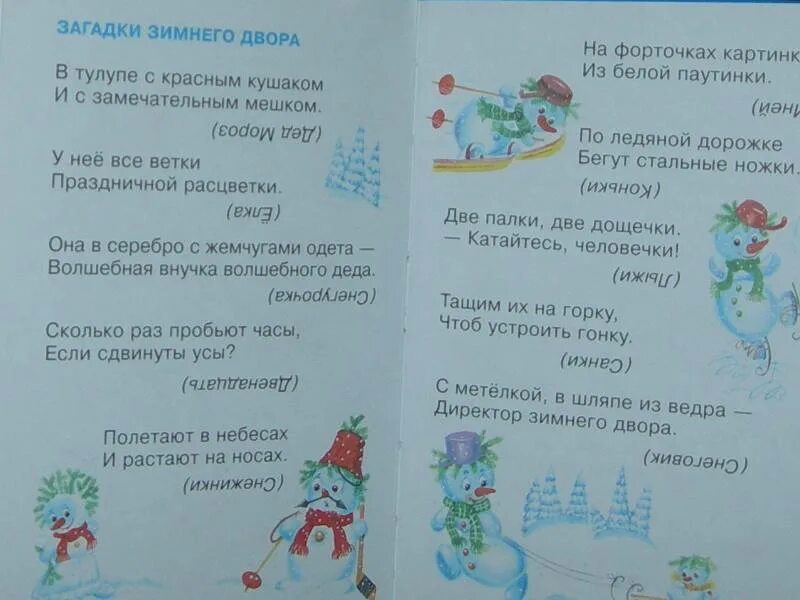 ЗАГАДКИ ЗИМНЕГО ДВОРА
В тулупе с красным кушаком
И с замечательным мешком.
(Дед Мороз)
У неё все ветки
Праздничной расцветки.
(Ёлка)
Она в серебро с жемчугами одета —
Волшебная внучка волшебного деда.
(Снегурочка)
Сколько раз пробьют часы,
Если сдвинуты усы?
(Двенадцать)
Полетают в небесах
И растают на носах.
(Снежинки)
На форточках картинк
Из белой паутинки.
(Иней)
По ледяной дорожке
Бегут стальные ножки.
(Коньки)
Две палки, две дощечки.
— Катайтесь, человечки!
(Лыжи)
Тащим их на горку,
Чтоб устроить гонку.
(Санки)
С метёлкой, в шляпе из ведра —
Директор зимнего двора.
(Снеговик)